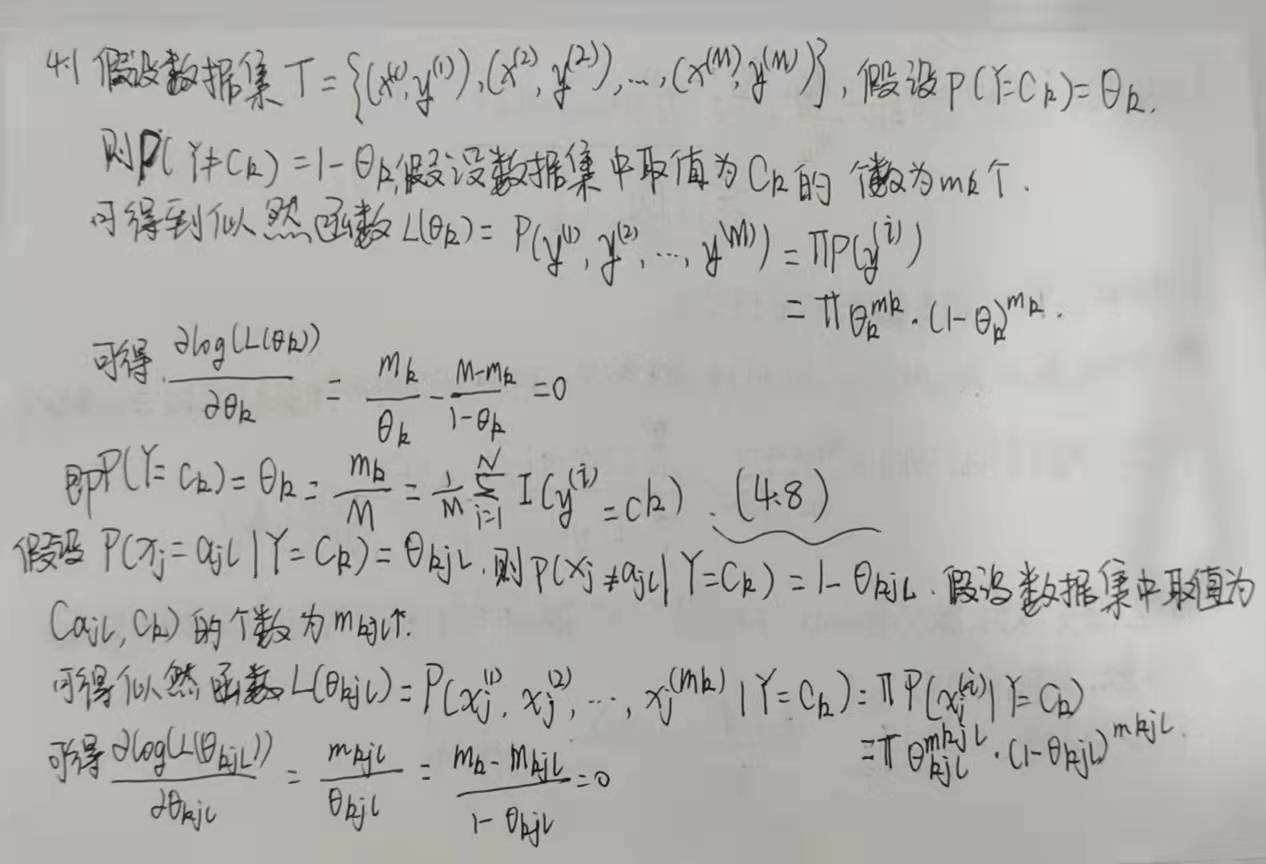 4.1 假设数据集 T = {(x^{(1)}, y^{(1)}), (x^{(2)}, y^{(2)}), ..., (x^{(M)}, y^{(M)})}, 假设 P(Y=C_k) = θ_k.
则 P(Y≠C_k) = 1-θ_k, 假设数据集中取值为 C_k 的个数为 m_k 个.
可得到似然函数 L(θ_k) = P(y^{(1)}, y^{(2)}, ..., y^{(M)}) = ΠP(y^{(i)})
= Π θ_k^{m_k} · (1-θ_k)^{m_k}.
可得. ∂log(L(θ_k))/∂θ_k = m_k/θ_k - (M-m_k)/(1-θ_k) = 0
即 P(Y=C_k) = θ_k = m_k/M = 1/M Σ_{i=1}^{N} I(y^{(i)} = ck). (4.8)
假设 P(x_j = a_{jl} | Y=C_k) = θ_{kjl}. 则 P(x_j ≠ a_{jl} | Y=C_k) = 1-θ_{kjl}. 假设数据集中取值为
(a_{jl}, C_k) 的个数为 m_{kjl}个.
可得似然函数 L(θ_{kjl}) = P(x_j^{(1)}, x_j^{(2)}, ..., x_j^{(m_k)} | Y=C_k) = Π P(x_j^{(i)} | Y=C_k)
= Π θ_{kjl}^{m_{kjl}} · (1-θ_{kjl})^{m_{kjl}}.
可得 ∂log(L(θ_{kjl}))/∂θ_{kjl} = m_{kjl}/θ_{kjl} = (m_k - m_{kjl})/(1-θ_{kjl}) = 0